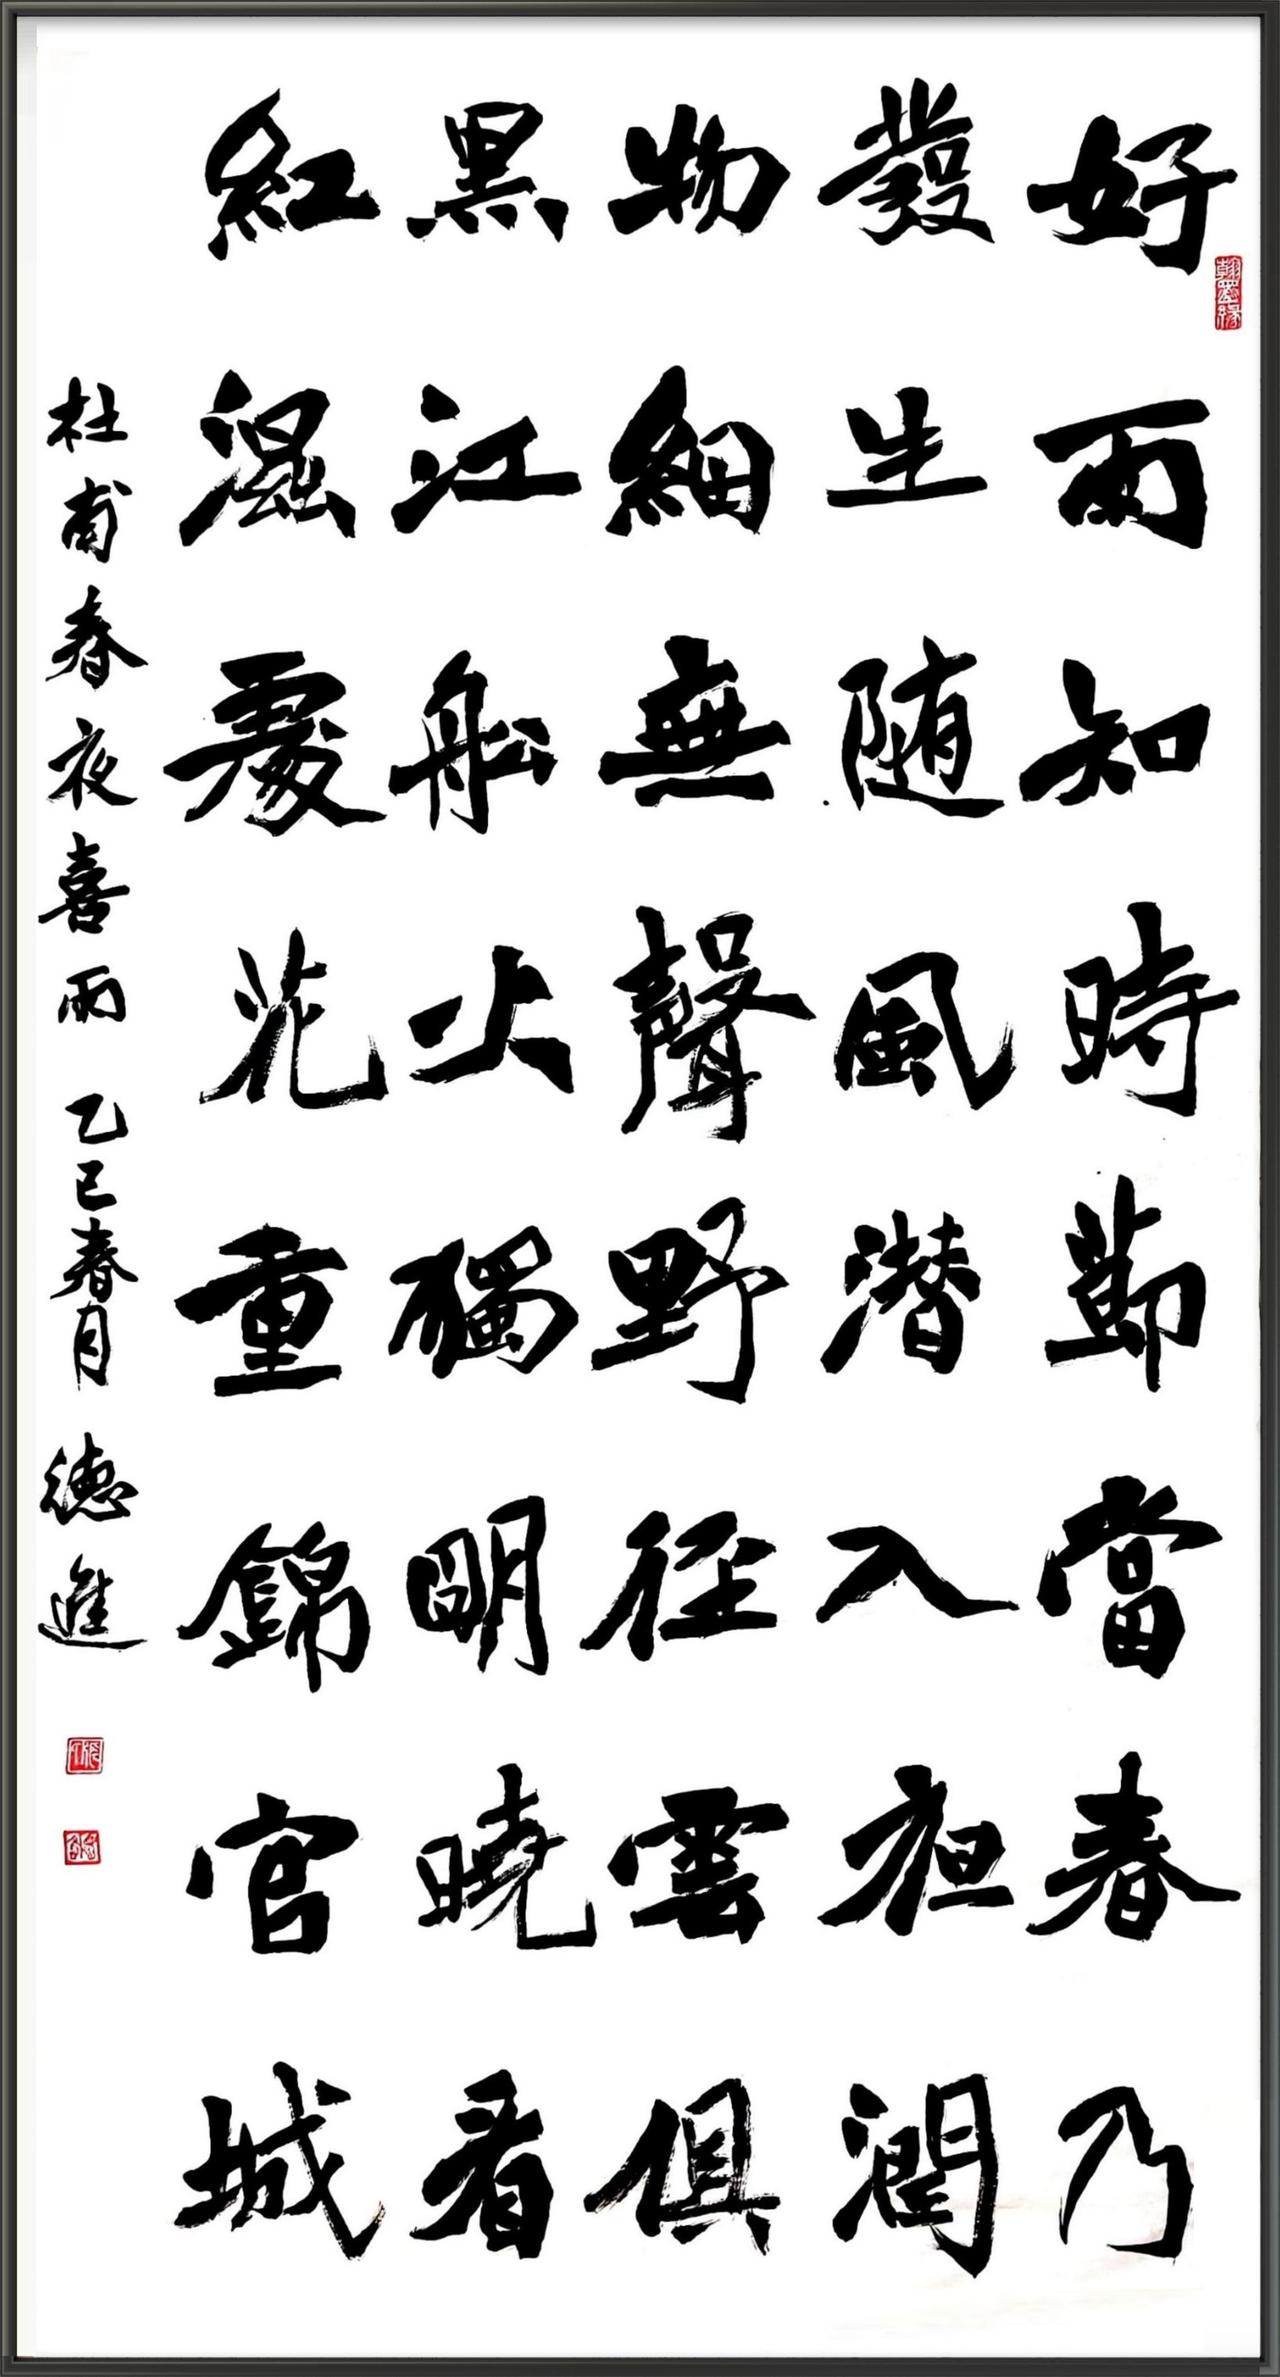 好雨知時節當春乃
發生随風潜入夜潤
物細無聲野径雲俱
黑江船火獨明曉看
紅濕處花重錦官城
杜甫春夜喜雨 乙巳春月 德進
翰墨缘